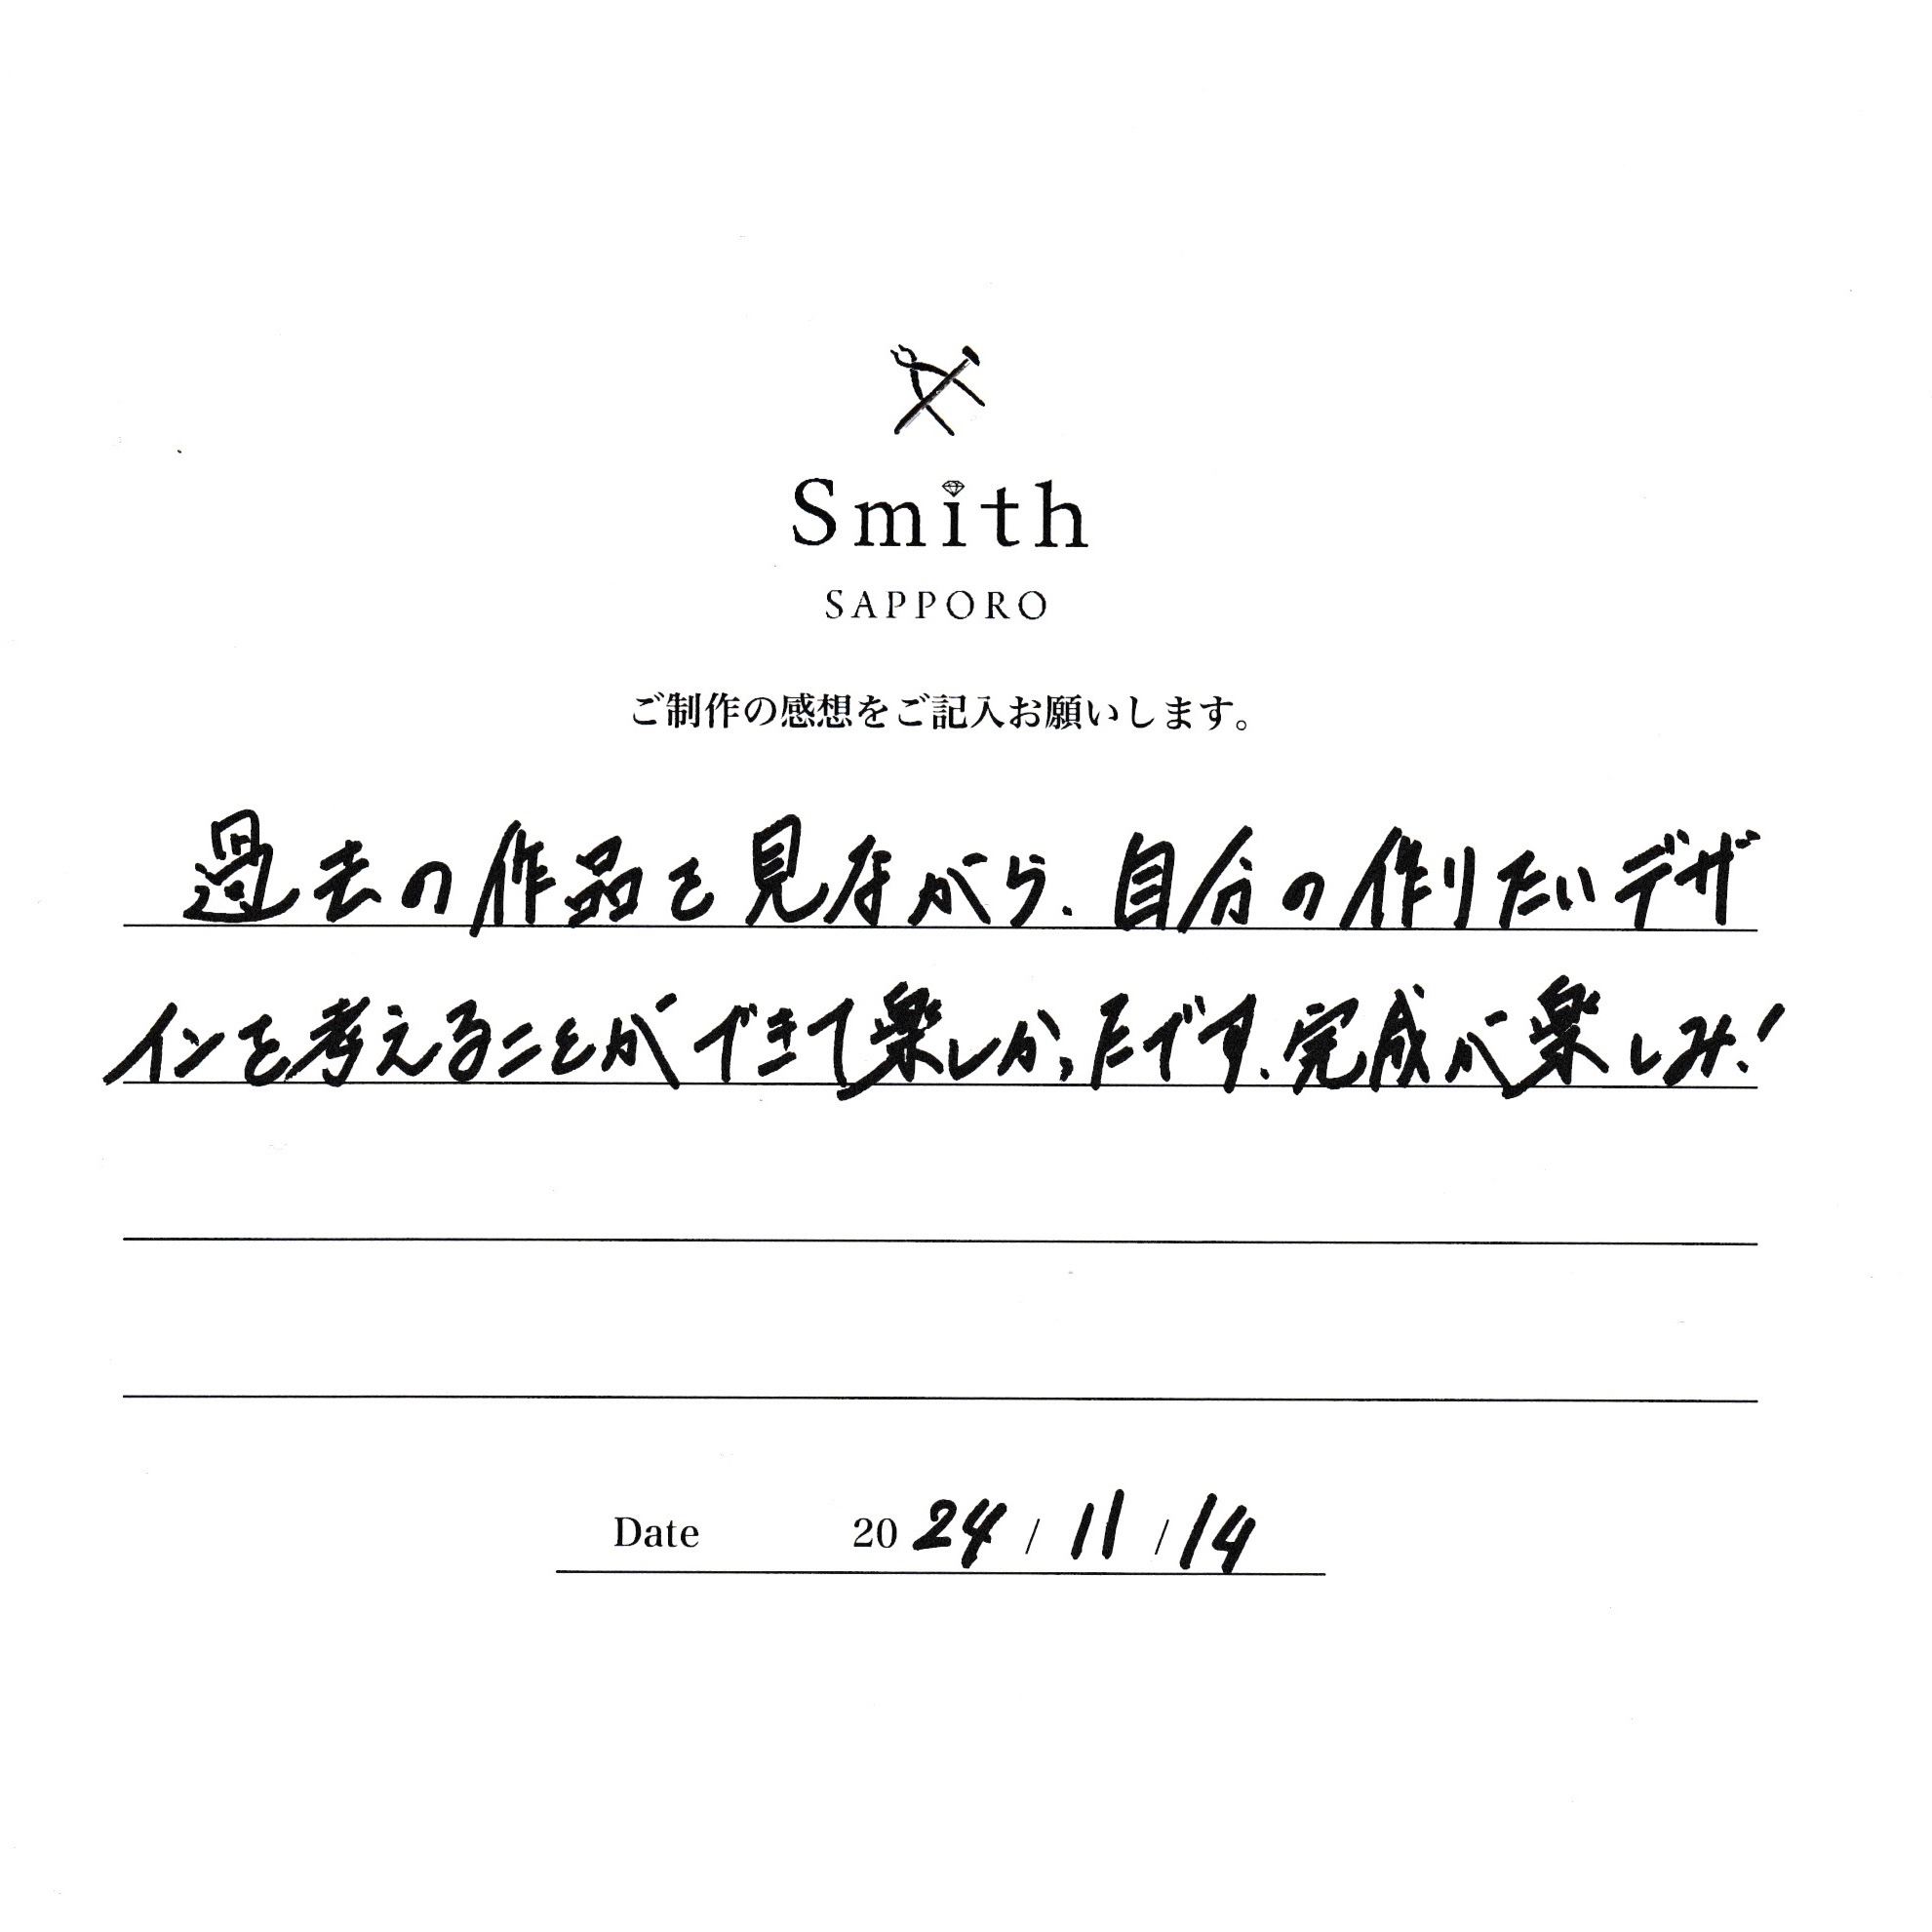 Smith
SAPPORO
ご制作の感想をご記入お願いします。
過去の作品を見ながら、自分の作りたいデザ
インを考えることができて楽しかったです、完成が楽しみ!
Date 2024/11/14